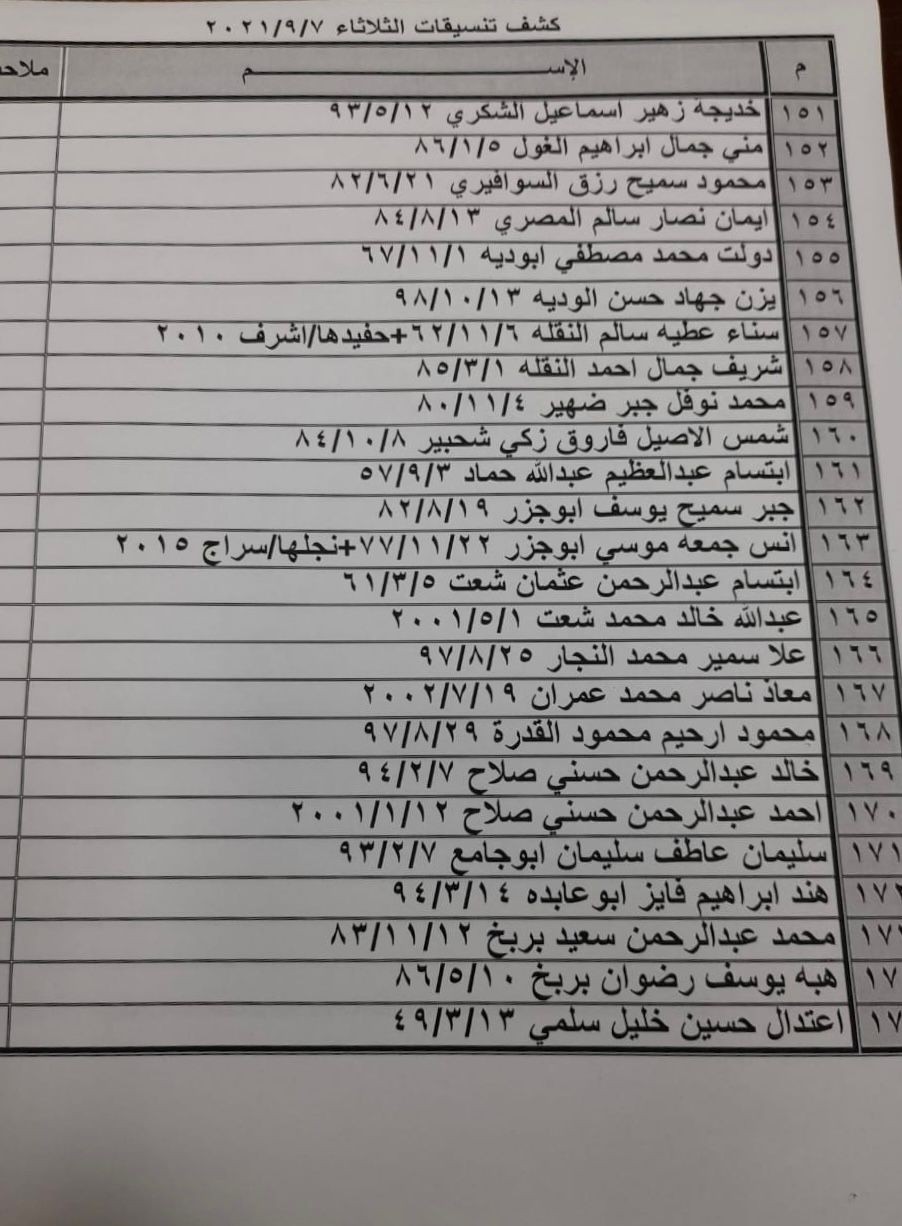 كشف تنسيقات الثلاثاء ٢٠٢١/٩/٧
م الإســـــــــم ملاحـ
١٥١ خديجة زهير اسماعيل الشكري ٩٣/٥/١٢
١٥٢ مني جمال ابراهيم الغول ٨٦/١/٥
١٥٣ محمود سميح رزق السوافيري ٨٢/٦/٢١
١٥٤ ايمان نصار سالم المصري ٨٤/٨/١٣
١٥٥ دولت محمد مصطفي ابوديه ٦٧/١١/١
١٥٦ يزن جهاد حسن الوديه ٩٨/١٠/١٣
١٥٧ سناء عطيه سالم النقله ٦٢/١١/٦+حفيدها/اشرف ٢٠١٠
١٥٨ شريف جمال احمد النقله ٨٥/٣/١
١٥٩ محمد نوفل جبر ضهير ٨٠/١١/٤
١٦٠ شمس الاصيل فاروق زكي شحبير ٨٤/١٠/٨
١٦١ ابتسام عبدالعظيم عبدالله حماد ٥٧/٩/٣
١٦٢ جبر سميح يوسف ابوجزر ٨٢/٨/١٩
١٦٣ انس جمعه موسي ابوجزر ٧٧/١١/٢٢+نجلها/سراج ٢٠١٥
١٦٤ ابتسام عبدالرحمن عثمان شعت ٦١/٣/٥
١٦٥ عبدالله خالد محمد شعت ٢٠٠١/٥/١
١٦٦ علا سمير محمد النجار ٩٧/٨/٢٥
١٦٧ معاذ ناصر محمد عمران ٢٠٠٢/٧/١٩
١٦٨ محمود ارحيم محمود القدرة ٩٧/٨/٢٩
١٦٩ خالد عبدالرحمن حسني صلاح ٩٤/٢/٧
١٧٠ احمد عبدالرحمن حسني صلاح ٢٠٠١/١/١٢
١٧١ سليمان عاطف سليمان ابوجامع ٩٣/٢/٧
١٧٢ هند ابراهيم فايز ابوعابده ٩٤/٣/١٤
١٧ محمد عبدالرحمن سعيد بربخ ٨٣/١١/١٢
١٧ هبه يوسف رضوان بربخ ٨٦/٥/١٠
١٧ اعتدال حسين خليل سلمي ٤٩/٣/١٣